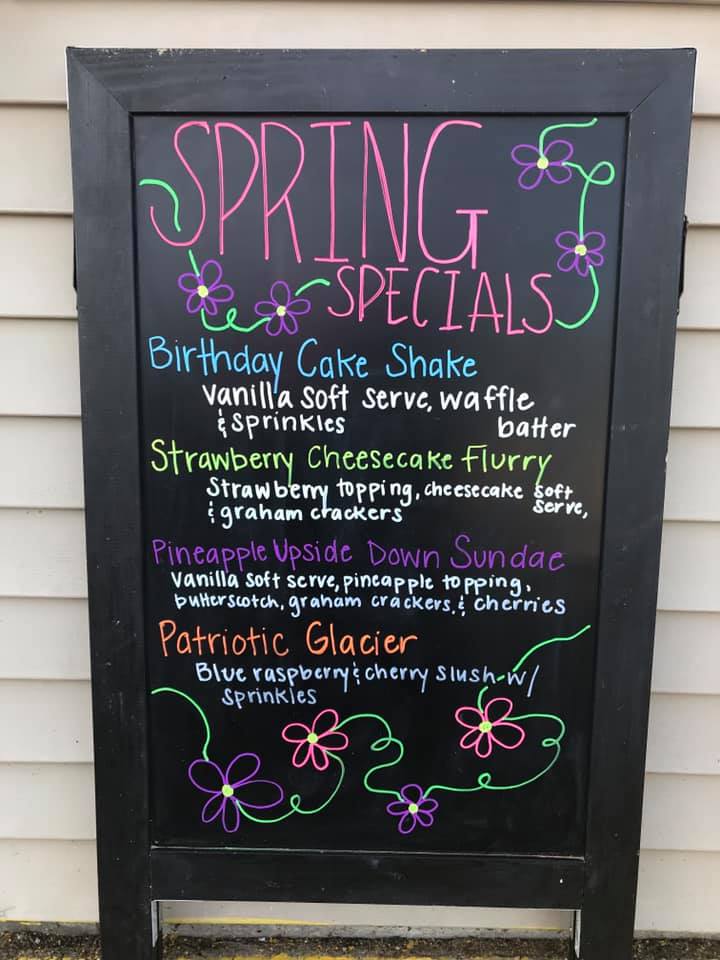 SPRING
SPECIALS
Birthday Cake Shake
Vanilla soft serve, waffle
& sprinkles batter
Strawberry Cheesecake Flurry
Strawberry topping, cheesecake soft
& graham crackers serve,
Pineapple Upside Down Sundae
Vanilla soft serve, pineapple topping,
butterscotch, graham crackers, & cherries
Patriotic Glacier
Blue raspberry & cherry slush w/
sprinkles